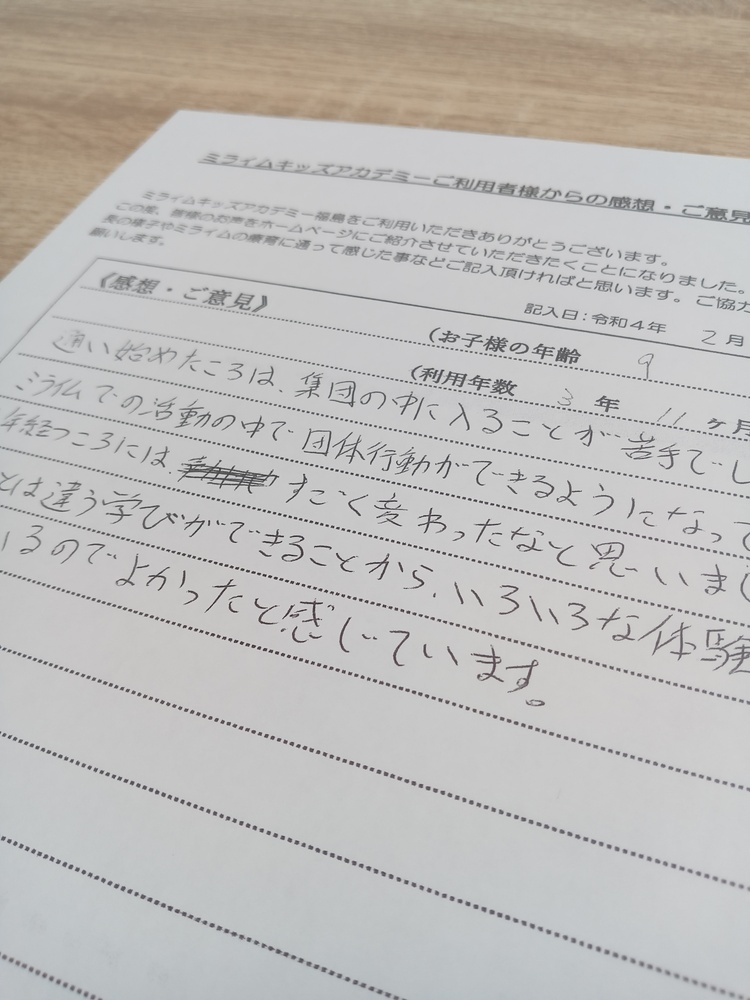 ミライムキッズアカデミーご利用者様からの感想・ご意見
ミライムキッズアカデミー福島をご利用いただきありがとうございます。
この度、皆様のお声をホームページにご紹介させていただきたくことになりました。
長の様子やミライムの療育に通って感じた事などご記入頂ければと思います。ご協力
願いします。
記入日：令和４年 2月
《感想・ご意見》
（お子様の年齢 9
（利用年数 3 年 11 ヶ月
通い始めたころは、集団の中に入ることが苦手でし
ミライムでの活動の中で団体行動ができるようになって
年経つころには、すごく変わったなと思いまし
とは違う学びができることから、いろいろな体験
いるのでよかったと感じています。